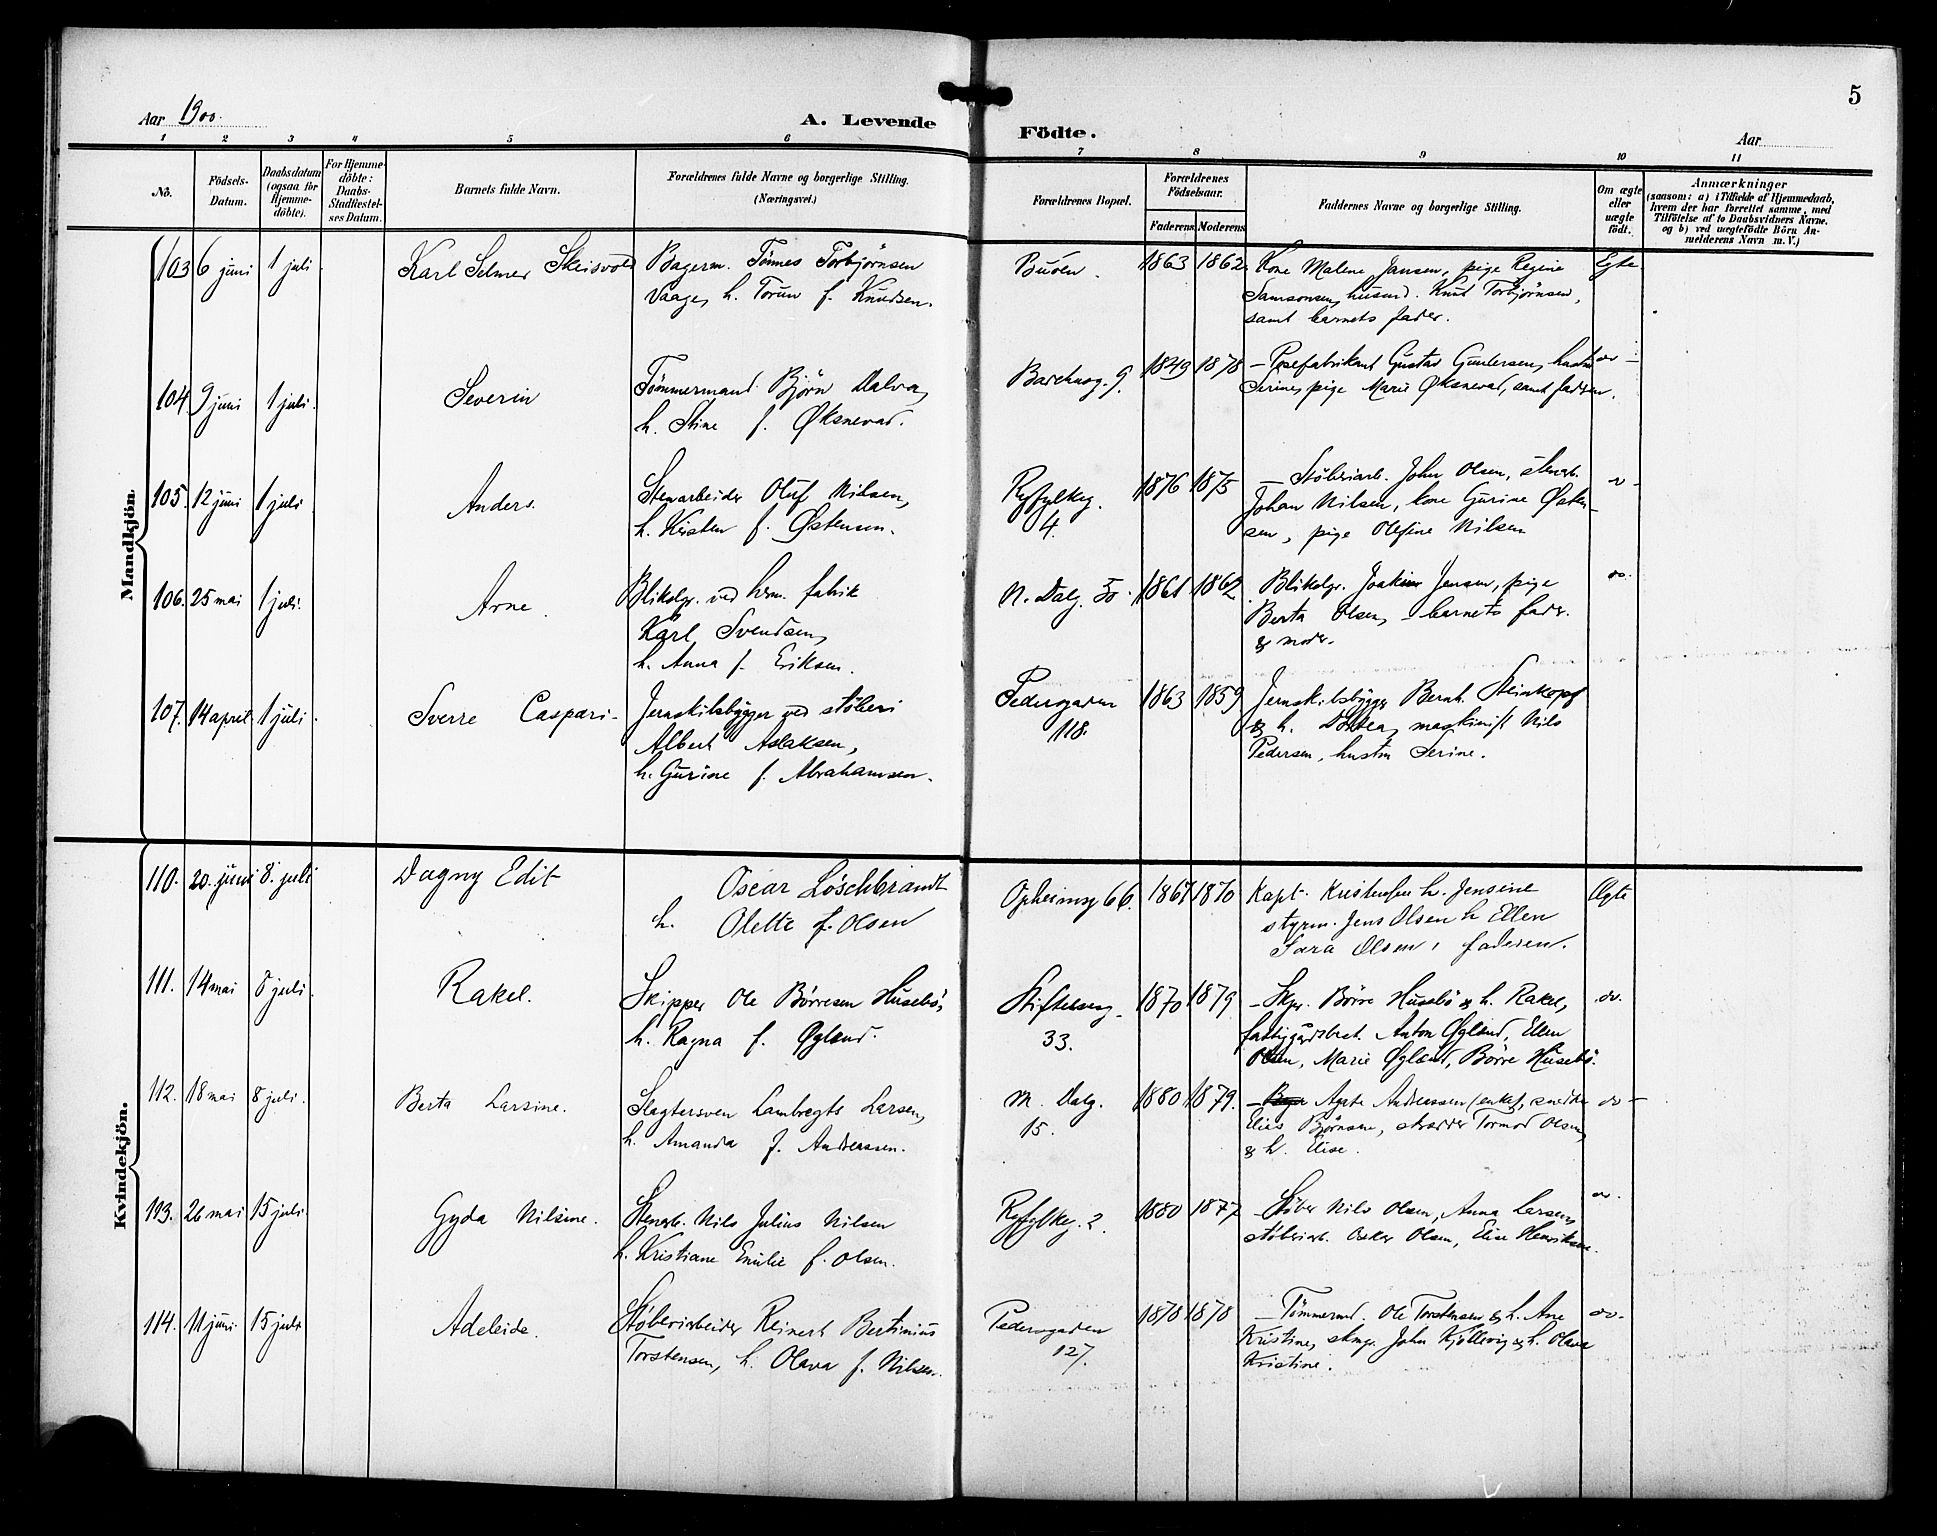 Aar 1900.
A. Levende
Födte.
5
Aar
1 2 3 4 5 6 7 8 9 10 11
No.
Födsels-
Datum.
Daabsdatum
(ogsaa for
Hjemme-
döbte).
For Hjemme-
döbte:
Daabs-
Stadfæstel-
ses Datum.
Barnets fulde Navn.
Forældrenes fulde Navne og borgerlige Stilling.
(Næringsvei.)
Forældrenes Bopæl.
Forældrenes
Födselsaar.
Faderens Moderens
Faddernes Navne og borgerlige Stilling.
Om ægte
eller
uægte
født.
Anmærkninger
(saasom: a) i Tilfælde af Hjemmedaab,
hvem der har forrettet samme, med
Tilföielse af to Daabsvidners Navne.
og b) ved uægtefödte Börn An-
melderens Navn m. V.)
Mandkjön.
103 6 juni 1 juli Karl Selmer Skeisvold
Bagerm. Tönnes Torbjørnsen
Vaage, h. Torun f. Knudsen.
Buöen. 1863 1862
Kone Malene Jansen, pige Regine
Samsonsen, husmd. Knut Torbjørnsen,
samt barnets fader.
Egte
104. 9 juni 1 juli. Severin
Tømmermand Bjørn Dalva,
h. Stine f. Øksnevad.
Bakhusg. 9. 1849 1878
– Posefabrikant Gustav Gundersen, hustru
Serine, pige Marie Øksnevad, samt fadren.
do –
105. 12 juni 1 juli Anders.
Stenarbeider Oluf Nilsen,
h. Kirsten f. Østensen.
Ryfylkeg.
4. 1876 1875
– Støberiarb. John Olsen, stenarb.
Johan Nilsen, kone Gurine Østen-
sen, pige Olefine Nilsen
106. 25 mai 1 juli. Arne.
Blikslgr. ved herm. fabrik
Karl Svendsen,
h. Anna f. Eriksen.
N. Dalg. 50. 1861 1862
Blikslgr. Joakim Jensen, pige
Berta Olsen, barnets fader
& moder.
do.
107. 14 april 1 juli Sverre Caspari-
Jernskibsbygger ved støberi
Albert Aslaksen,
h. Gurine f. Abrahamsen.
Pedersgaden
118. 1863 1859
Jernskibsbygger Bernh. Steinkopf
& h. Dortea, maskinist Nils
Pedersen, hustru Serine.
Kvindekjön.
110. 20. juni 8. juli Dagny Edit
Oscar Löschbrandt
h. Olette f. Olsen
Opheimsg 66. 1867 1870
Kapt. Kristensen h. Jensine
styrm. Jens Olsen h Ellen
Sara Olsen, faderen.
Ægte
111. 14 mai 8 juli. Rakel.
Skipper Ole Børresen Husebö,
h. Ragna f. Øglend.
Stiftelsesg.
33. 1870 1879
– Skpr. Børre Husebö & h. Rakel,
fattiggårdsbest. Anton Øglend, Ellen
Olsen, Marie Øglend, Börre Husebö.
do.
112. 18 mai 8 juli. Berta Larsine.
Slagtersven Lambregts Larsen,
h. Amanda f. Andreassen.
M. Dalg.
15. 1880 1879.
– Agate Andreassen (enke), snedker
Elias Bjørnsen, skrædder Tormod Olsen
& h. Elise.
do –
113. 26 mai 15 juli. Gyda Nilsine.
Stenarb. Nils Julius Nilsen
h. Kristiane Emilie f. Olsen.
Ryfylkeg. 2. 1880 1877
– Støber Nils Olsen, Anna Larsen,
støberiarb. Oskar Olsen, Elise Henriksen.
do.
114. 11 juni. 15 juli Adeleide.
Støberiarbeider Reinert Bertinius
Torstensen, h. Olava f. Nilsen.
Pedersgaden
127. 1878 1878
– Tømmermd. Ole Torstensen & h. Ane
Kristine, skmgr. John Kjollevig & h. Olava
Kristine.
do.